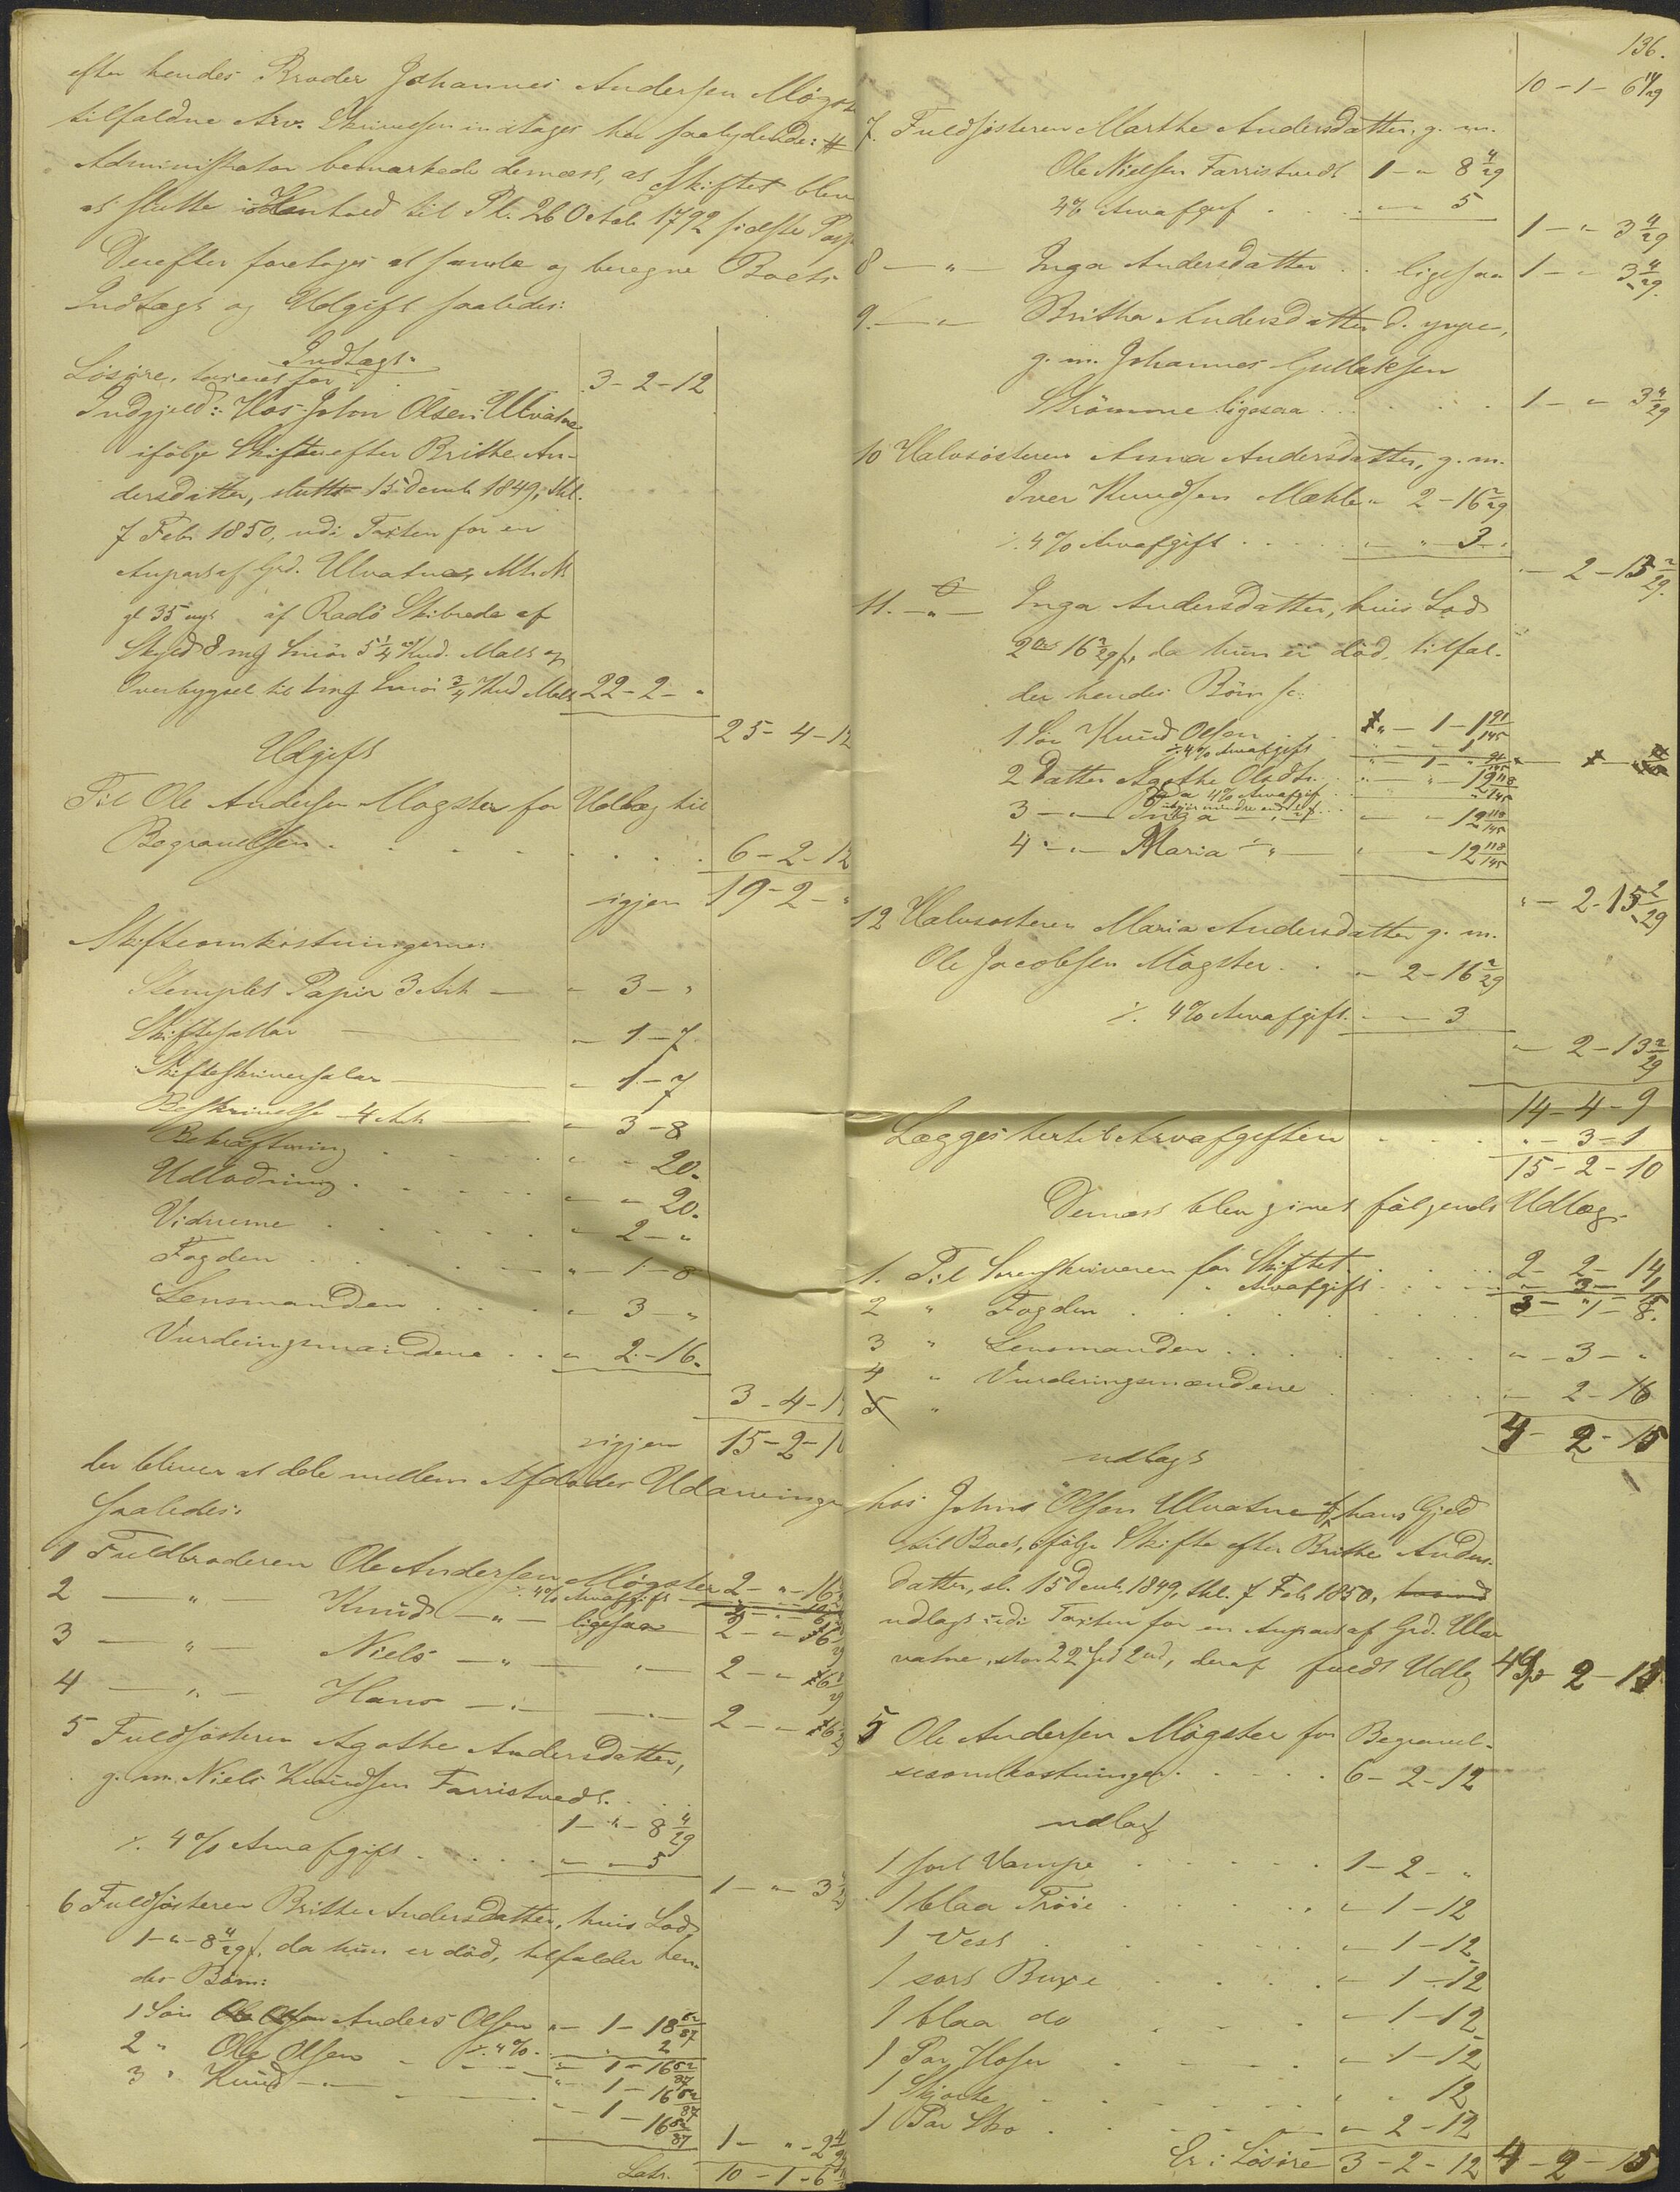 efter hendes Broder Johannes Andersen Møgst
tilfaldne Arv. Skrivelsen indtages her saalydende: #
Administrator bemærkede dernæst, at Skiftet blev
at slutte i Henhold til Pl. 26 Octob 1792 sidste
Derefter foretoges at samle og beregne Boets
Indtægt og Udgift saaledes:
Indtægt.
Løsøre, taxeret for 3-2-12
Indgjeld: Hos John Olsen Ulvatne
ifølge Skifte efter Brithe An-
dersdatter, sluttet 15 Decemb 1849,
7 Feb. 1850, udi Taxten for en
Anpart af Grd. Ulvatne, Mt. N
gl 35 af Radö Skibrede af
Skyld 8 mrk Smör 5 1/4 Kd. Malt og
Overbygsel til 1 mrk Smör 3/4 Kd Malt 22-2-"
25-4-12
Udgift
Til Ole Andersen Møgster for Udlæg til
Begravelsen . . . . 6-2-12
igjen 19-2-"
Skifteomkostningerne:
Stemplet Papir 3 Ark — " 3-"
Skiftesallar — " 1-7
Skifteskriversalar — " 1-7
Beskrivelse 4 Ark — " 3-8
Bekræftning . . . " " 20.
Udlodning . . . " " 20.
Vidnerne . . . " 2-"
Fogden . . . " 1-8
Lensmanden . . . " 3-"
Vurderingsmændene . . " 2-16.
3-4-1
igjen 15-2-1
der bliver at dele mellem Afdødes Udarvinger
saaledes:
1 Fuldbroderen Ole Andersen Møgster 2-"-16
÷ 4% Arvafgift
2 — " — Knud — " — ligesaa 2-"-6
3 — " — Niels — " — " — 2-"-6
4 — " — Hans — " — " — 2-"-6
5 Fuldsøsteren Agathe Andersdatter,
g. m. Niels Knudsen Farristvedt. . . .
1-"-8 4/29
÷ 4% Arvafgift . . . . " " 5
1-"-3
6 Fuldsøsteren Brithe Andersdatter, hvis Lod,
1-"-8 4/29 ß, da hun er död, tilfalder hen-
des Børn:
1 Søn Anders Olsen "-1-18 52/87
÷ 4% . " " 2
"-1-16 52/87
2 " Ole Olsen . . . "-1-16 52/87
3 " Knud — " — . . . "-1-16 52/87
1-"-2
Latr. 10-1-6
136.
10-1-6 14/29
7. Fuldsøsteren Marthe Andersdatter, g. m.
Ole Nielsen Farristvedt 1-"-8 4/29
4% Arvafgift . . . " " 5
1-"-3 4/29
8 — " — Inga Andersdatter . . ligesaa 1-"-3 4/29.
9. — " — Britha Andersdatter d. yngre,
g. m. Johannes Gullaksen
Strömme ligesaa . . . . . 1-"-3 4/29
10 Halvsøsteren Anna Andersdatter, g. m.
Iver Knudsen Mækle " 2-16 2/29
÷ 4% Arvafgift . . . . . " " 3 .
"-2-13 2/29.
11. — " — Inga Andersdatter, hvis Lod
2 Ort 16 2/29 ß, da hun er död, tilfal-
der hendes Börn sc:
1 Søn Knud Olsen . . "-1-1 91/145
÷ 4% Arvafgift " " 1
"-1-" 91/145
2 Datter Agathe Olsdtr. . . " " 12 118/145
Da 4% Arvafgift
utgjør mindre end 1 ß.
3 — " — Inga — " — . . " " 12 118/145
4 — " — Maria — " — " " 12 118/145
"-2-15 2/29
12 Halvsøsteren Maria Andersdatter g. m.
Ole Jacobsen Møgster . . " 2-16 2/29
÷ 4% Arvafgift. " " 3
"-2-13 2/29
14-4-9
Lægges hertil Arvafgiften . . . . "-3-1
15-2-10
Dernæst blev givet følgende Udlæg.
1. Til Sorenskriveren for Skiftet . . . 2-2-14
" Arvafgift . . . . "-3-1
3-"-15
2 " Fogden . . . . . "-1-8.
3 " Lensmanden . . . . . "-3-"
4 " Vurderingsmændene . . . . "-2-16
4-2-15
udlagt
hos John Olsen Ulvatne af hans Gjeld
til Boet, ifølge Skifte efter Brithe Anders-
datter, sl. 15 Decemb. 1849, 7 Feb 1850,
udlagt udi Taxten for en Anpart af Grd. Ulv-
vatne, stor 22 Spd 2 Ort, deraf fuldt Udlæg 4 Sp 2-15
5 Ole Andersen Møgster for Begravel-
sesomkostninger . . . . 6-2-12
udlagt
1 sort Vampe . . . . 1-2-"
1 blaa Trøie . . . . "-1-12
1 Vest . . . . "-1-12
1 sort Buxe . . . . "-1-12
1 blaa do . . . . "-1-12
1 Par Hoser . . . . "-1-12
1 Skjorte . . . . " " 12
1 Par Sko . . . . "-2-12
Er i Løsøre 3-2-12 4-2-15